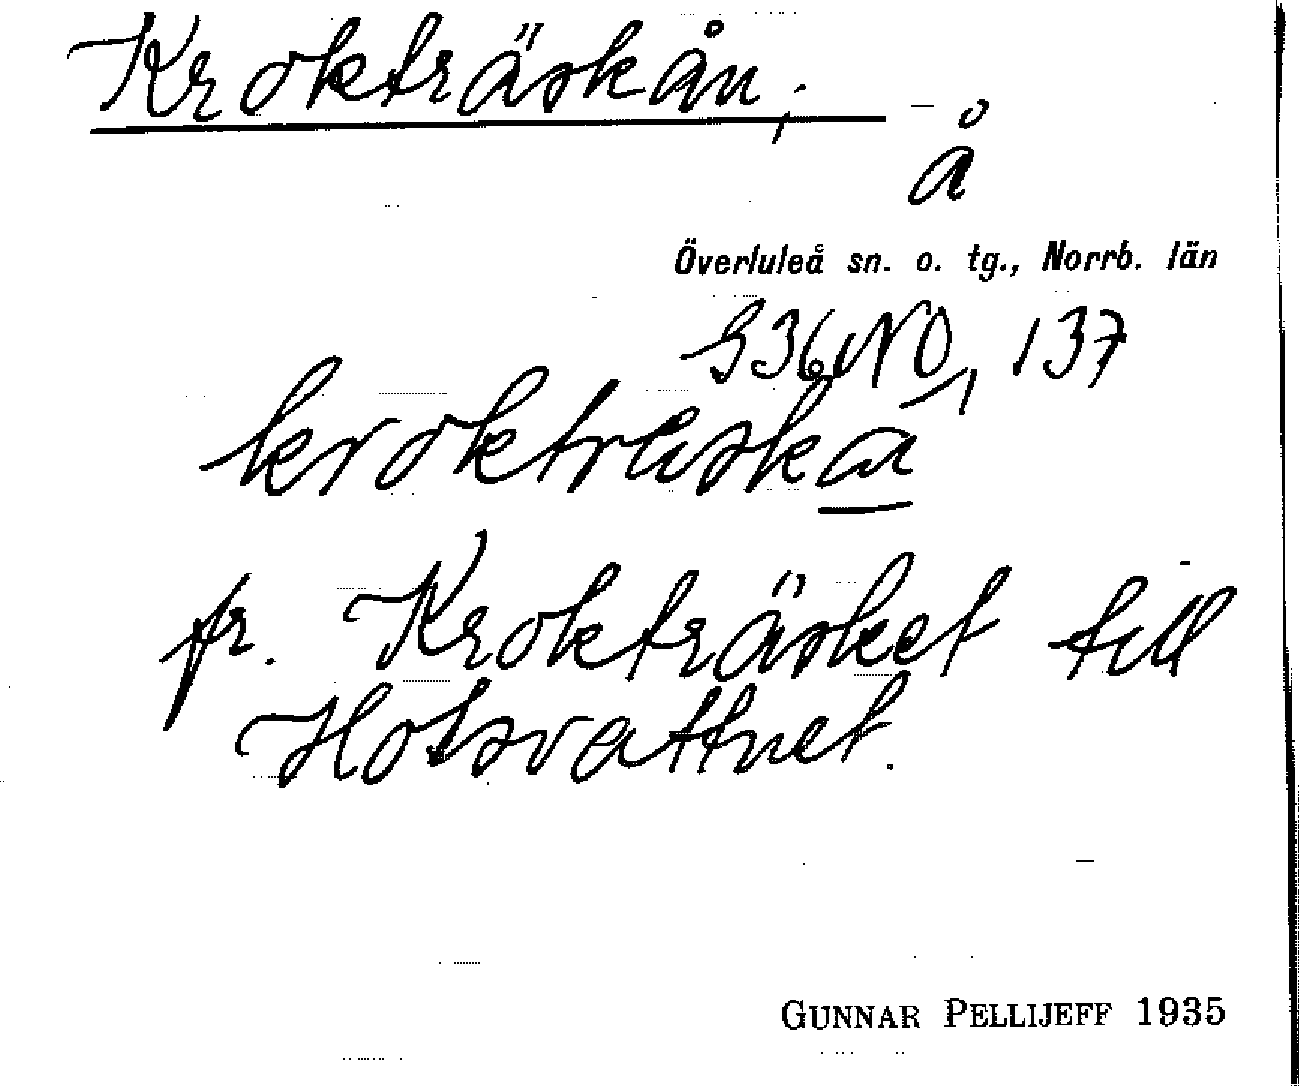 Krokträskån,
å
Överluleå sn. o. tg., Norrb. län
S36NO, 137
kroktræska
fr. Krokträsket till
Hotsvattnet.
GUNNAR PELLIJEFF 1935